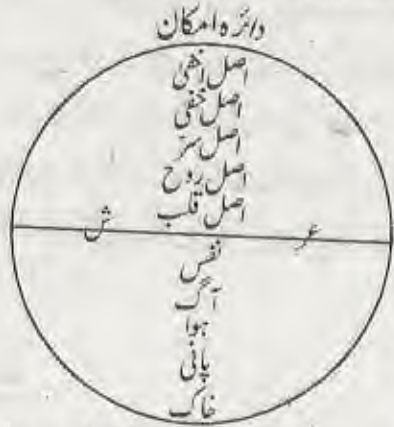 دائرہ امکان
اصل اخفی
اصل خفی
اصل سرّ
اصل روح
اصل قلب
عر ش
نفس
آگ
ہوا
پانی
خاک